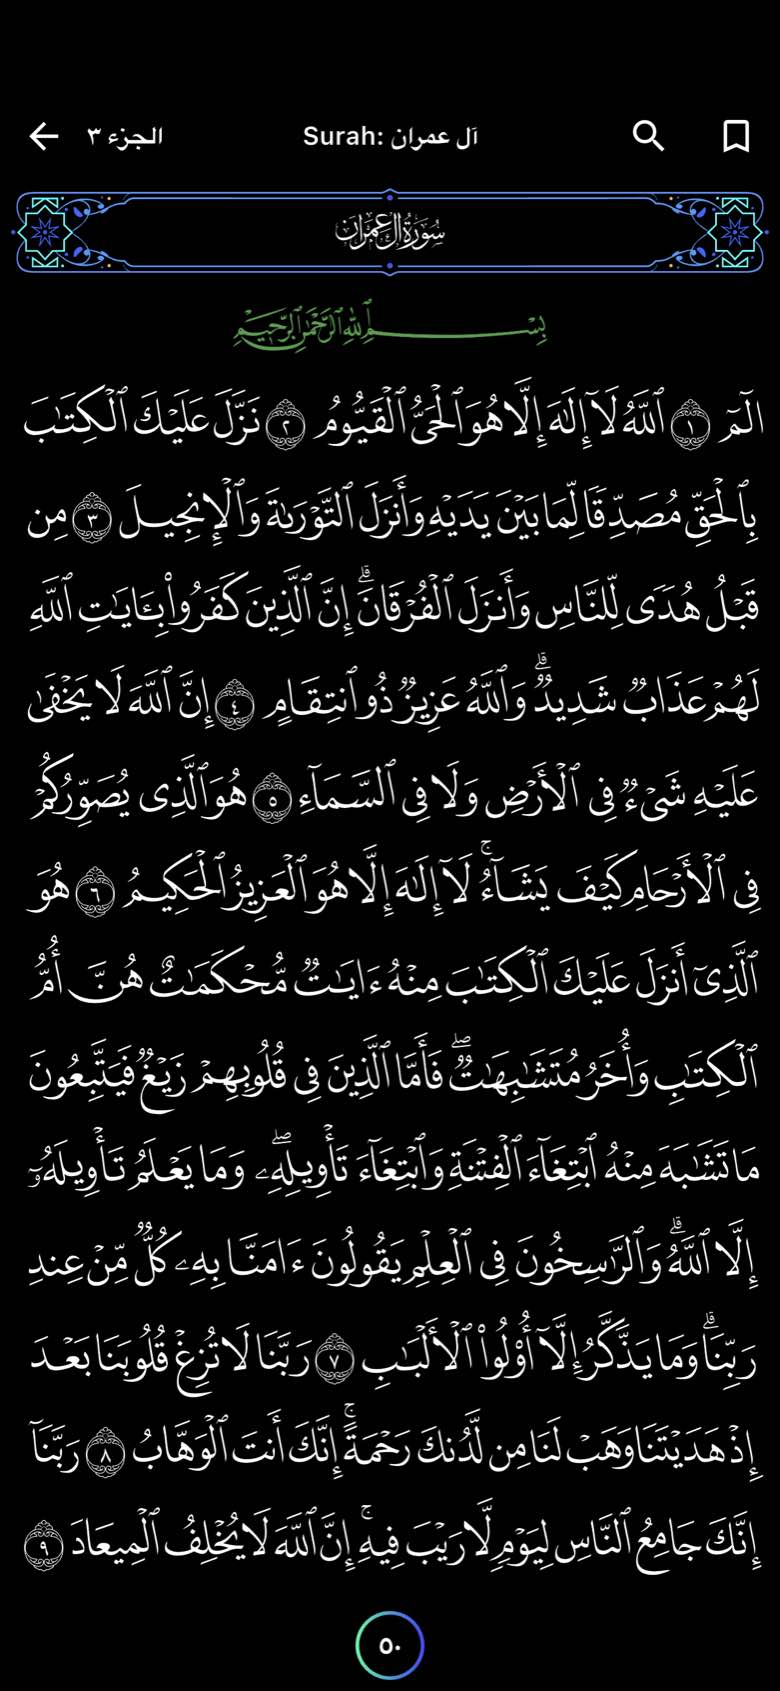 الجزء ٣
Surah: آل عمران
سُورَةُ آلِ عِمْرَانَ
بِسْمِ ٱللَّهِ ٱلرَّحْمَٰنِ ٱلرَّحِيمِ
الٓمٓ ١ ٱللَّهُ لَآ إِلَٰهَ إِلَّا هُوَ ٱلْحَىُّ ٱلْقَيُّومُ ٢ نَزَّلَ عَلَيْكَ ٱلْكِتَٰبَ
بِٱلْحَقِّ مُصَدِّقًا لِّمَا بَيْنَ يَدَيْهِ وَأَنزَلَ ٱلتَّوْرَىٰةَ وَٱلْإِنجِيلَ ٣ مِن
قَبْلُ هُدًى لِّلنَّاسِ وَأَنزَلَ ٱلْفُرْقَانَۗ إِنَّ ٱلَّذِينَ كَفَرُوا۟ بِـَٔايَٰتِ ٱللَّهِ
لَهُمْ عَذَابٌ شَدِيدٌۗ وَٱللَّهُ عَزِيزٌ ذُو ٱنتِقَامٍ ٤ إِنَّ ٱللَّهَ لَا يَخْفَىٰ
عَلَيْهِ شَىْءٌ فِى ٱلْأَرْضِ وَلَا فِى ٱلسَّمَآءِ ٥ هُوَ ٱلَّذِى يُصَوِّرُكُمْ
فِى ٱلْأَرْحَامِ كَيْفَ يَشَآءُۚ لَآ إِلَٰهَ إِلَّا هُوَ ٱلْعَزِيزُ ٱلْحَكِيمُ ٦ هُوَ
ٱلَّذِىٓ أَنزَلَ عَلَيْكَ ٱلْكِتَٰبَ مِنْهُ ءَايَٰتٌ مُّحْكَمَٰتٌ هُنَّ أُمُّ
ٱلْكِتَٰبِ وَأُخَرُ مُتَشَٰبِهَٰتٌۖ فَأَمَّا ٱلَّذِينَ فِى قُلُوبِهِمْ زَيْغٌ فَيَتَّبِعُونَ
مَا تَشَٰبَهَ مِنْهُ ٱبْتِغَآءَ ٱلْفِتْنَةِ وَٱبْتِغَآءَ تَأْوِيلِهِۦۖ وَمَا يَعْلَمُ تَأْوِيلَهُۥٓ
إِلَّا ٱللَّهُۗ وَٱلرَّٰسِخُونَ فِى ٱلْعِلْمِ يَقُولُونَ ءَامَنَّا بِهِۦ كُلٌّ مِّنْ عِندِ
رَبِّنَاۗ وَمَا يَذَّكَّرُ إِلَّآ أُو۟لُوا۟ ٱلْأَلْبَٰبِ ٧ رَبَّنَا لَا تُزِغْ قُلُوبَنَا بَعْدَ
إِذْ هَدَيْتَنَا وَهَبْ لَنَا مِن لَّدُنكَ رَحْمَةًۚ إِنَّكَ أَنتَ ٱلْوَهَّابُ ٨ رَبَّنَآ
إِنَّكَ جَامِعُ ٱلنَّاسِ لِيَوْمٍ لَّا رَيْبَ فِيهِۚ إِنَّ ٱللَّهَ لَا يُخْلِفُ ٱلْمِيعَادَ ٩
٥٠